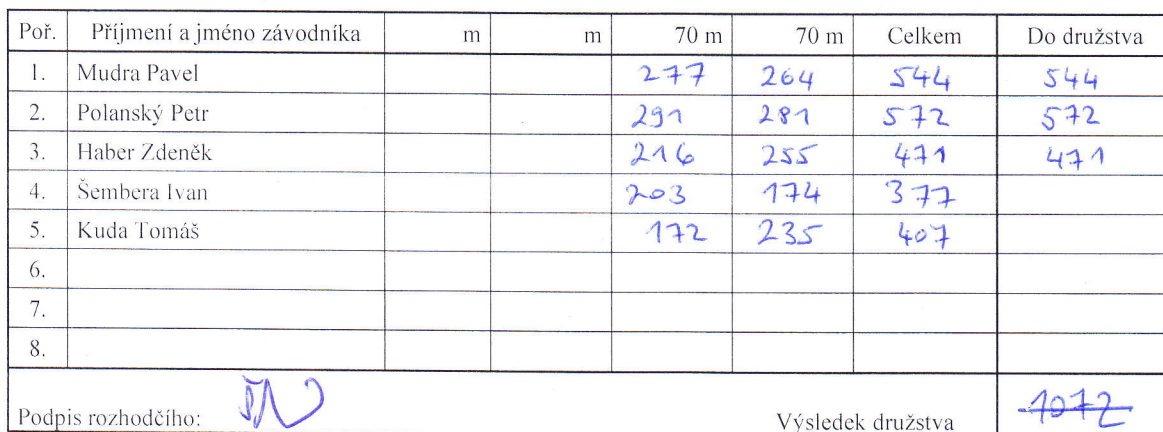 Poř. Příjmení a jméno závodníka m m 70 m 70 m Celkem Do družstva
1. Mudra Pavel 277 264 544 544
2. Polanský Petr 291 281 572 572
3. Haber Zdeněk 216 255 471 471
4. Šembera Ivan 203 174 377
5. Kuda Tomáš 172 235 407
6.
7.
8.
Podpis rozhodčího: Výsledek družstva 1072